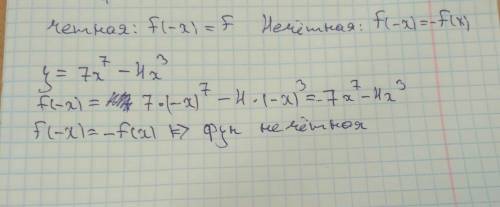 четная: f(-x) = f Нечётная: f(-x)=-f(x)
y = 7x⁷ - 4x³
f(-x) = 7·(-x)⁷ - 4·(-x)³ = -7x⁷ - 4x³
f(-x) = -f(x) => фун нечётная